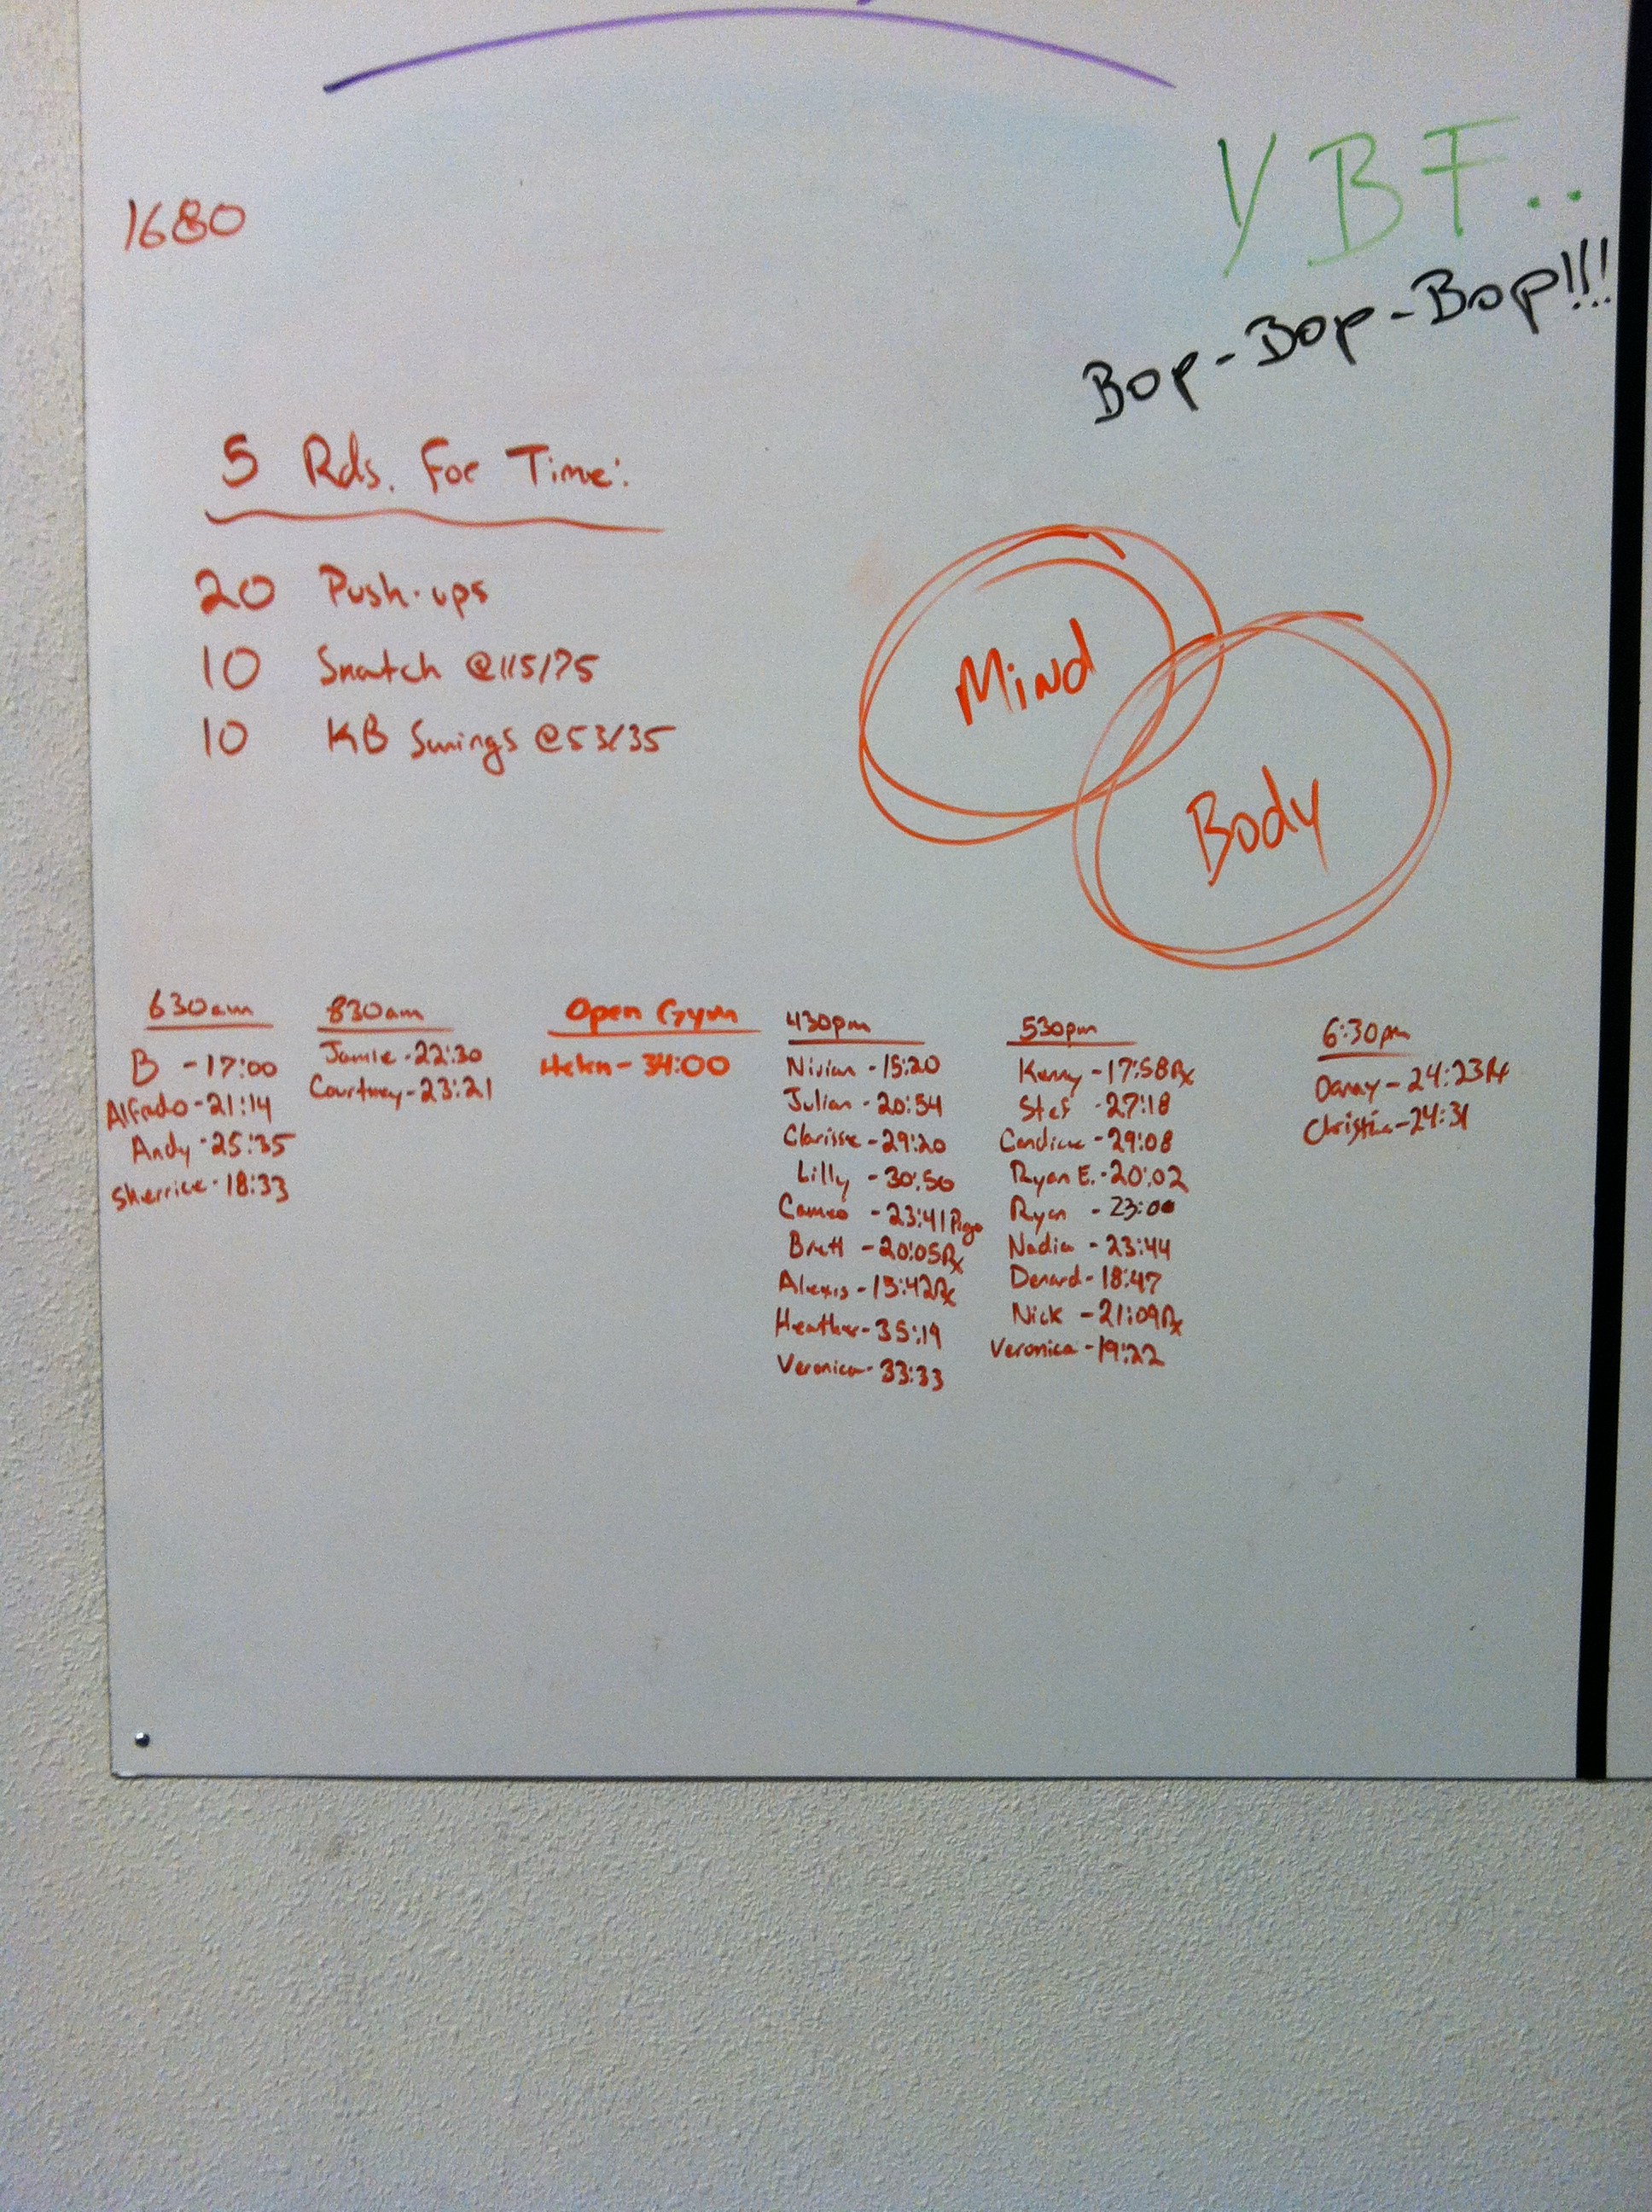 1680
YBF..
Bop-Bop-Bop!!!
5 Rds. For Time:
20 Push-ups
10 Snatch @115/75
10 KB Swings @53/35
Mind
Body
630am
B - 17:00
Alfredo - 21:14
Andy - 25:35
Sherrice - 18:33
830am
Jamie - 22:30
Courtney - 23:21
Open Gym
Helen - 34:00
430pm
Nivian - 15:20
Julian - 20:54
Clarisse - 29:20
Lilly - 30:50
Cameo - 23:41
Brett - 20:05 Rx
Alexis - 15:42 Rx
Heather - 35:19
Veronica - 33:33
530pm
Kenny - 17:58 Rx
Stef - 27:18
Candice - 29:08
Ryan E. - 20:02
Ryan - 23:00
Nadia - 23:44
Denard - 18:47
Nick - 21:09 Rx
Veronica - 19:22
6:30pm
Danny - 24:23 Rx
Christina - 24:31